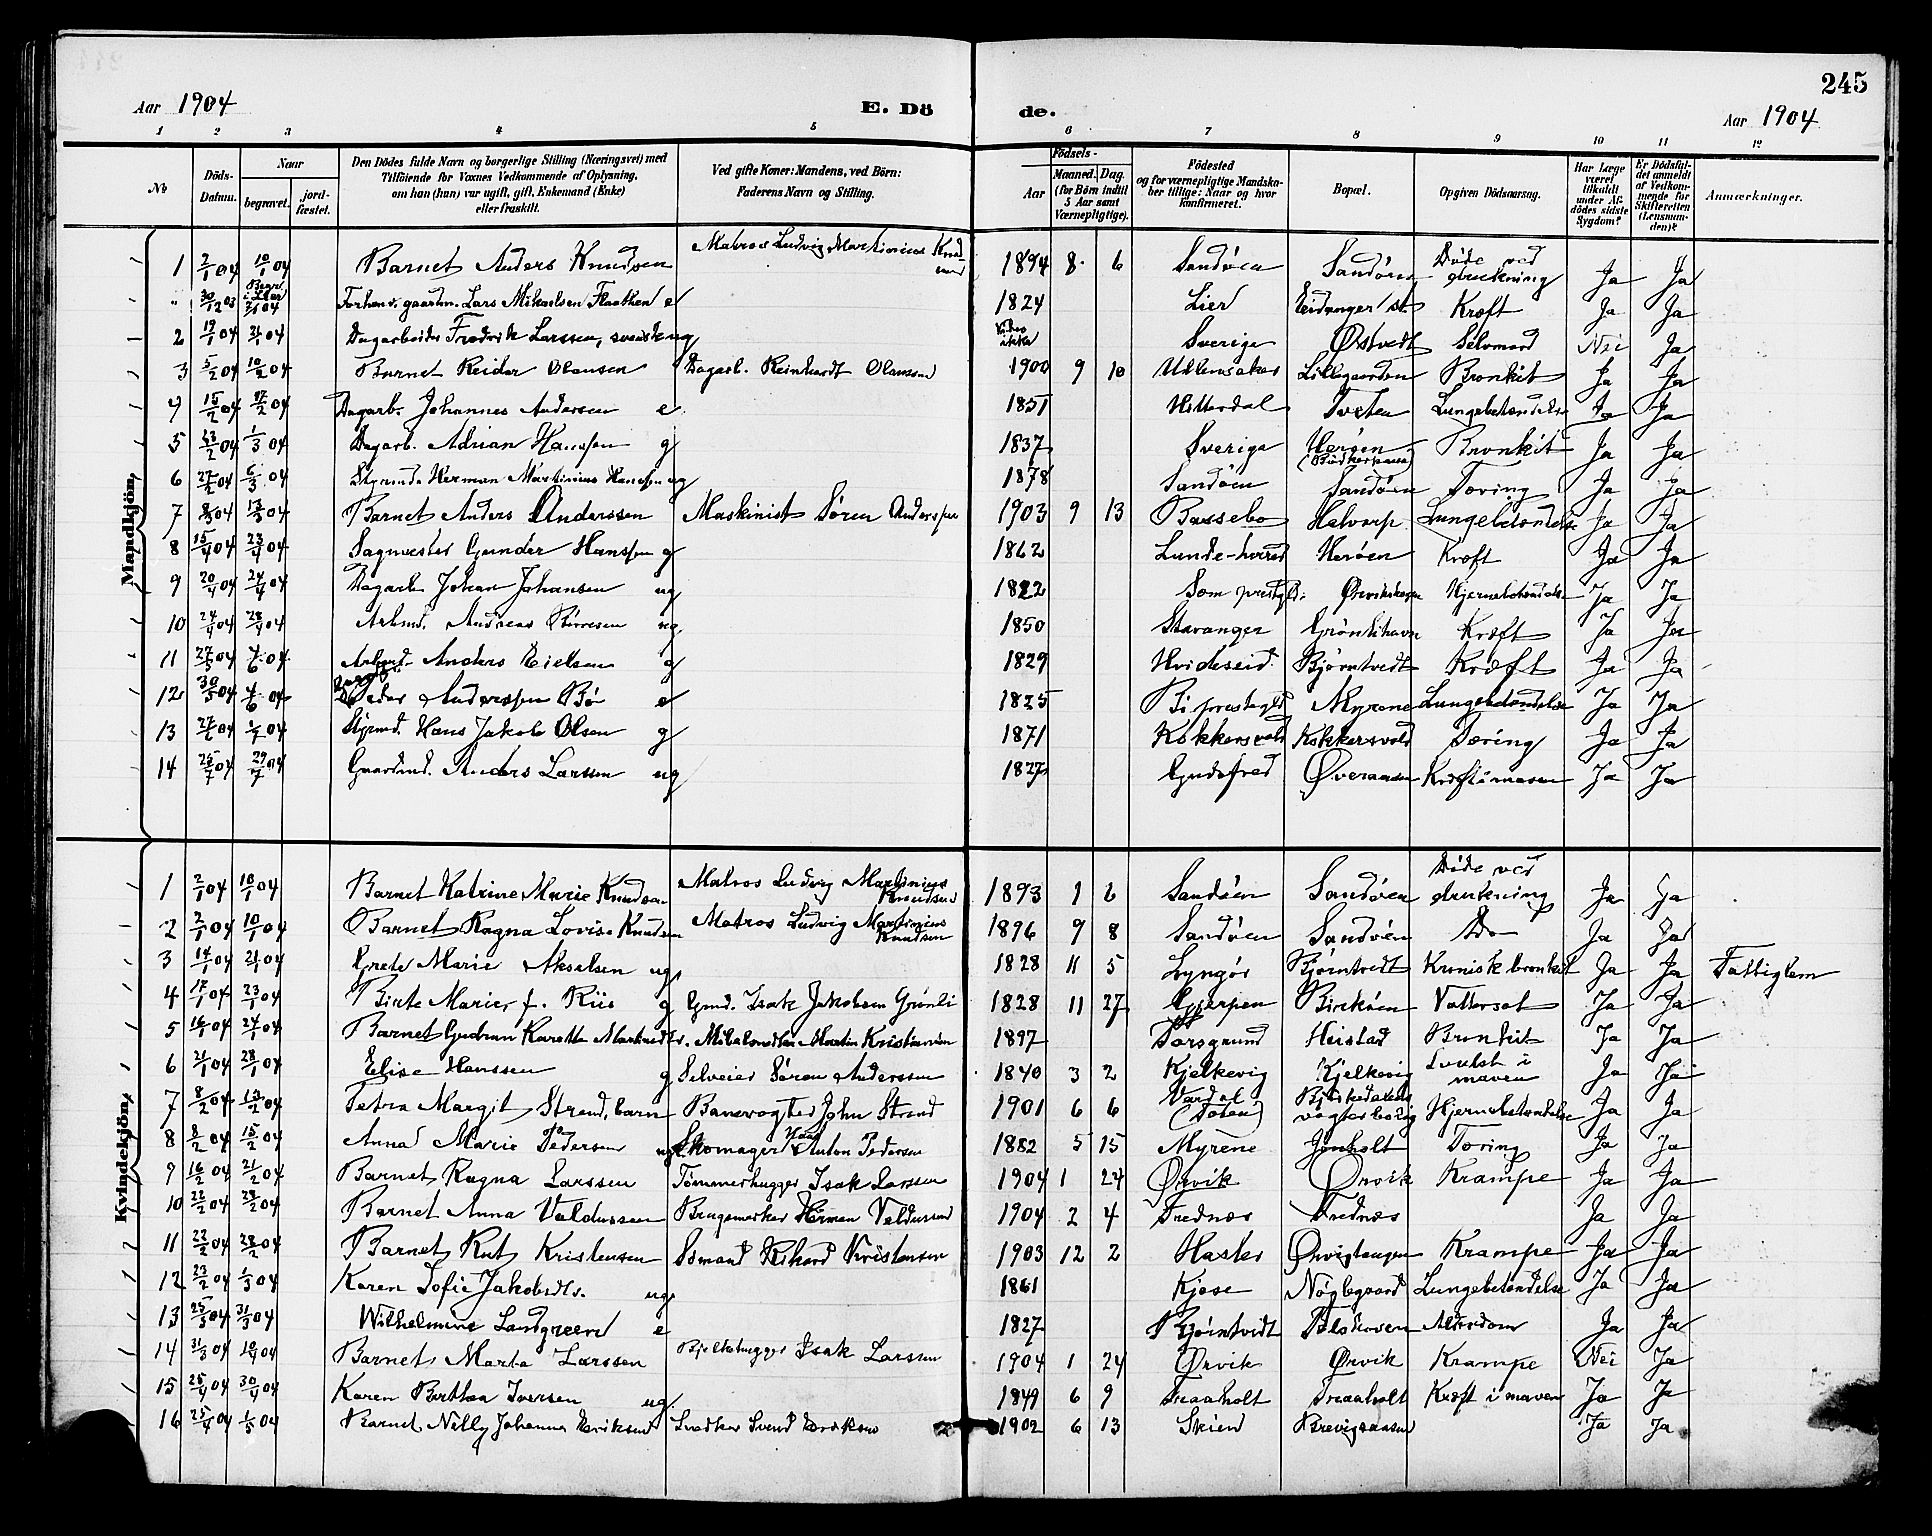 245
Aar 1904 E. Dö de. Aar 1904
1 2 3 4 5 6 7 8 9 10 11 12
No Döds-Datum. Naar begravet. jordfæstet. Den Dödes fulde Navn og borgerlige Stilling (Næringsvei) med Tilföiende for Voxnes Vedkommende af Oplysning, om han (hun) var ugift, gift, Enkemand (Enke) eller fraskilt. Ved gifte Koner: Mandens, ved Börn: Faderens Navn og Stilling. Födsels- Aar Maaned. Dag. (for Börn indtil 5 Aar samt Værnepligtige). Födested og for værnepligtige Mandskaber tillige: Naar og hvor konfirmeret. Bopæl. Opgiven Dödsaarsag. Har Læge været tilkaldt under Afdödes sidste Sygdom? Er Dödsfaldet anmeldt af Vedkommende for Skifteretten (Lensmanden)? Anmærkninger.
Mandkjön.
1 2/1 04 10/1 04 Barnet Anders Knudsen Matros Ludvig Martinius Knudsen 1894 8 6 Sandöen Sandöen Döde ved drukning Ja Ja
" 30/12 03 Forhenv. gaardm. Lars Mikaelsen e 1824 Lier Eidanger st. Kræft Ja Ja
2 19/1 04 21/1 04 Dagarbeider Fredrik Larssen, svensk ug Vides ikke Sverige Østvedt Selvmord Nei Ja
3 5/2 04 10/2 04 Barnet Reidar Olausen Dagarb. Reinhardt Olaussen 1900 9 10 Ullensaker Lillegaarden Bronkit Ja Ja
4 15/2 04 17/2 04 Dagarb. Johannes Andersen e 1851 Hitterdal Tveten Lungebetændelse Ja Ja
5 23/2 04 1/3 04 Dagarb. Adrian Hanssen g 1837 Sverige Herøen Bronkit Ja Ja
6 27/2 04 6/3 04 Styrmd. Herman Martinius Hanssen ug 1878 Sandöen Sandöen Tæring Ja Ja
7 8/3 04 13/3 04 Barnet Anders Anderssen Maskinist Sören Anderssen 1903 9 13 Bassebo Halvarp Lungebetændelse Ja Ja
8 15/4 04 23/4 04 Sagmester Gunder Hanssen g 1862 Lunde-herred Herøen Kræft Ja Ja
9 20/4 04 24/4 04 Dagarb. Johan Johansen ug 1822 Ørvikskogen Hjernebetændelse Ja Ja
10 24/4 04 28/4 04 Arbmd. Andreas Börresen ug. 1850 Stavanger Grönlihavn Kræft Ja Ja
11 27/5 04 04 Arbmd. Anders Eielsen g 1829 Hvideseid Bjørntvedt Kræft Ja Ja
12 30/5 04 04 Peder Anderssen Bö e 1825 Bö prestegjd Myrene Lungebetændelse Ja Ja
13 04 04 Styrmd. Hans Jakob Olsen g 1871 Kokkersvold Kokkersvold Tæring Ja Ja
14 25/7 04 29/7 04 Gaardmd. Anders Larssen ug 1827 Øveraasen Kræft i maven Ja Ja
Kvindekjön.
1 2/1 04 10/1 04 Barnet Katrine Marie Knudsen Matros Ludvig Martinius Knudsen 1893 1 6 Sandöen Sandöen Döde ved drukning Ja Ja
2 2/1 04 10/1 04 Barnet Ragna Lovise Knudsen Matros Ludvig Martinius Knudsen 1896 9 8 Sandöen Sandöen Do Ja Ja
3 14/1 04 21/1 04 Grete Marie Akselsen ug. 1828 11 5 Lyngör Bjørntvedt Kronisk bronkit Ja Ja Fattiglem
4 17/1 04 23/1 04 Birte Marie, f. Riis g Gmd. Isak Jakobsen Grönli 1828 11 27 Gjerpen Birköen Vattersot Ja Ja
5 16/1 04 24/1 04 Barnet Gudrun Karotta Martinsdtr. Martin Kristiansen 1897 Porsgrund Heistad Bronkit Ja Ja
6 21/1 04 28/1 04 Elise Hanssen g Selveier Sören Anderssen 1840 3 2 Kjelkevig Kjelkevig Svulst i maven Ja Ja
7 8/2 04 13/2 04 Petra Margit Strand, barn Banevogter John Strand 1901 6 6 Vardal (Toten) vogterbolig Hjernebetændelse Ja Ja
8 8/2 04 15/2 04 Anna Marie Pedersen ug Skomager Anton Pedersen 1882 5 15 Myrene Jonholt Tæring Ja Ja
9 16/2 04 21/2 04 Barnet Ragna Larssen Tömmerhugger Isak Larssen 1904 1 24 Ørvik Ørvik Krampe Ja Ja
10 22/2 04 28/2 04 Barnet Anna Valdussen Herman Valdussen 1904 2 4 Trednæs Trednæs Ja Ja
11 22/2 04 28/2 04 Barnet Rut Kristensen Rikard Kristensen 1903 12 2 Hasler Ørvigtangen Krampe Ja Ja
12 23/2 04 1/3 04 Karen Sofie Jakobsdtr. ug 1861 Kjose Nøglegaard Lungebetændelse Ja Ja
13 25/3 04 31/3 04 Wilhelmine Landgreen e 1827 Bjørntvedt Alderdom Ja Ja
14 31/3 04 10/4 04 Barnet Marta Larssen Bjelkehugger Isak Larssen 1904 1 24 Ørvik Ørvik Krampe Nei Ja
15 25/4 04 30/4 04 Karen Bertea Iversen ug. 1849 6 9 Traaholt Traaholt Kræft i maven Ja Ja
16 25/4 04 1/5 04 Barnet Nelly Johanna Eriksen Svend Eriksen 1902 6 13 Skien Brevigsaasen Ja Ja